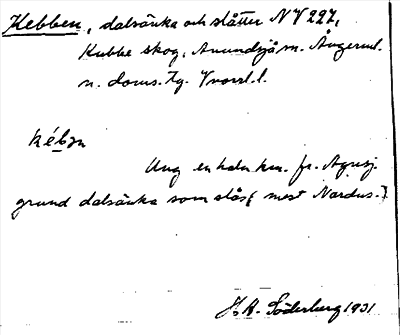 Kebben, dalsänka och slåtter NV 227,
Kubbe skog, Anundsjö sn. Ångerml.
n. doms. Tg. Vnorrl. l.
kébɜn
Ung en halv km. fr. Agnsj.
grund dalsänka som slås (mest Nardus.)
H. A. Söderberg 1931